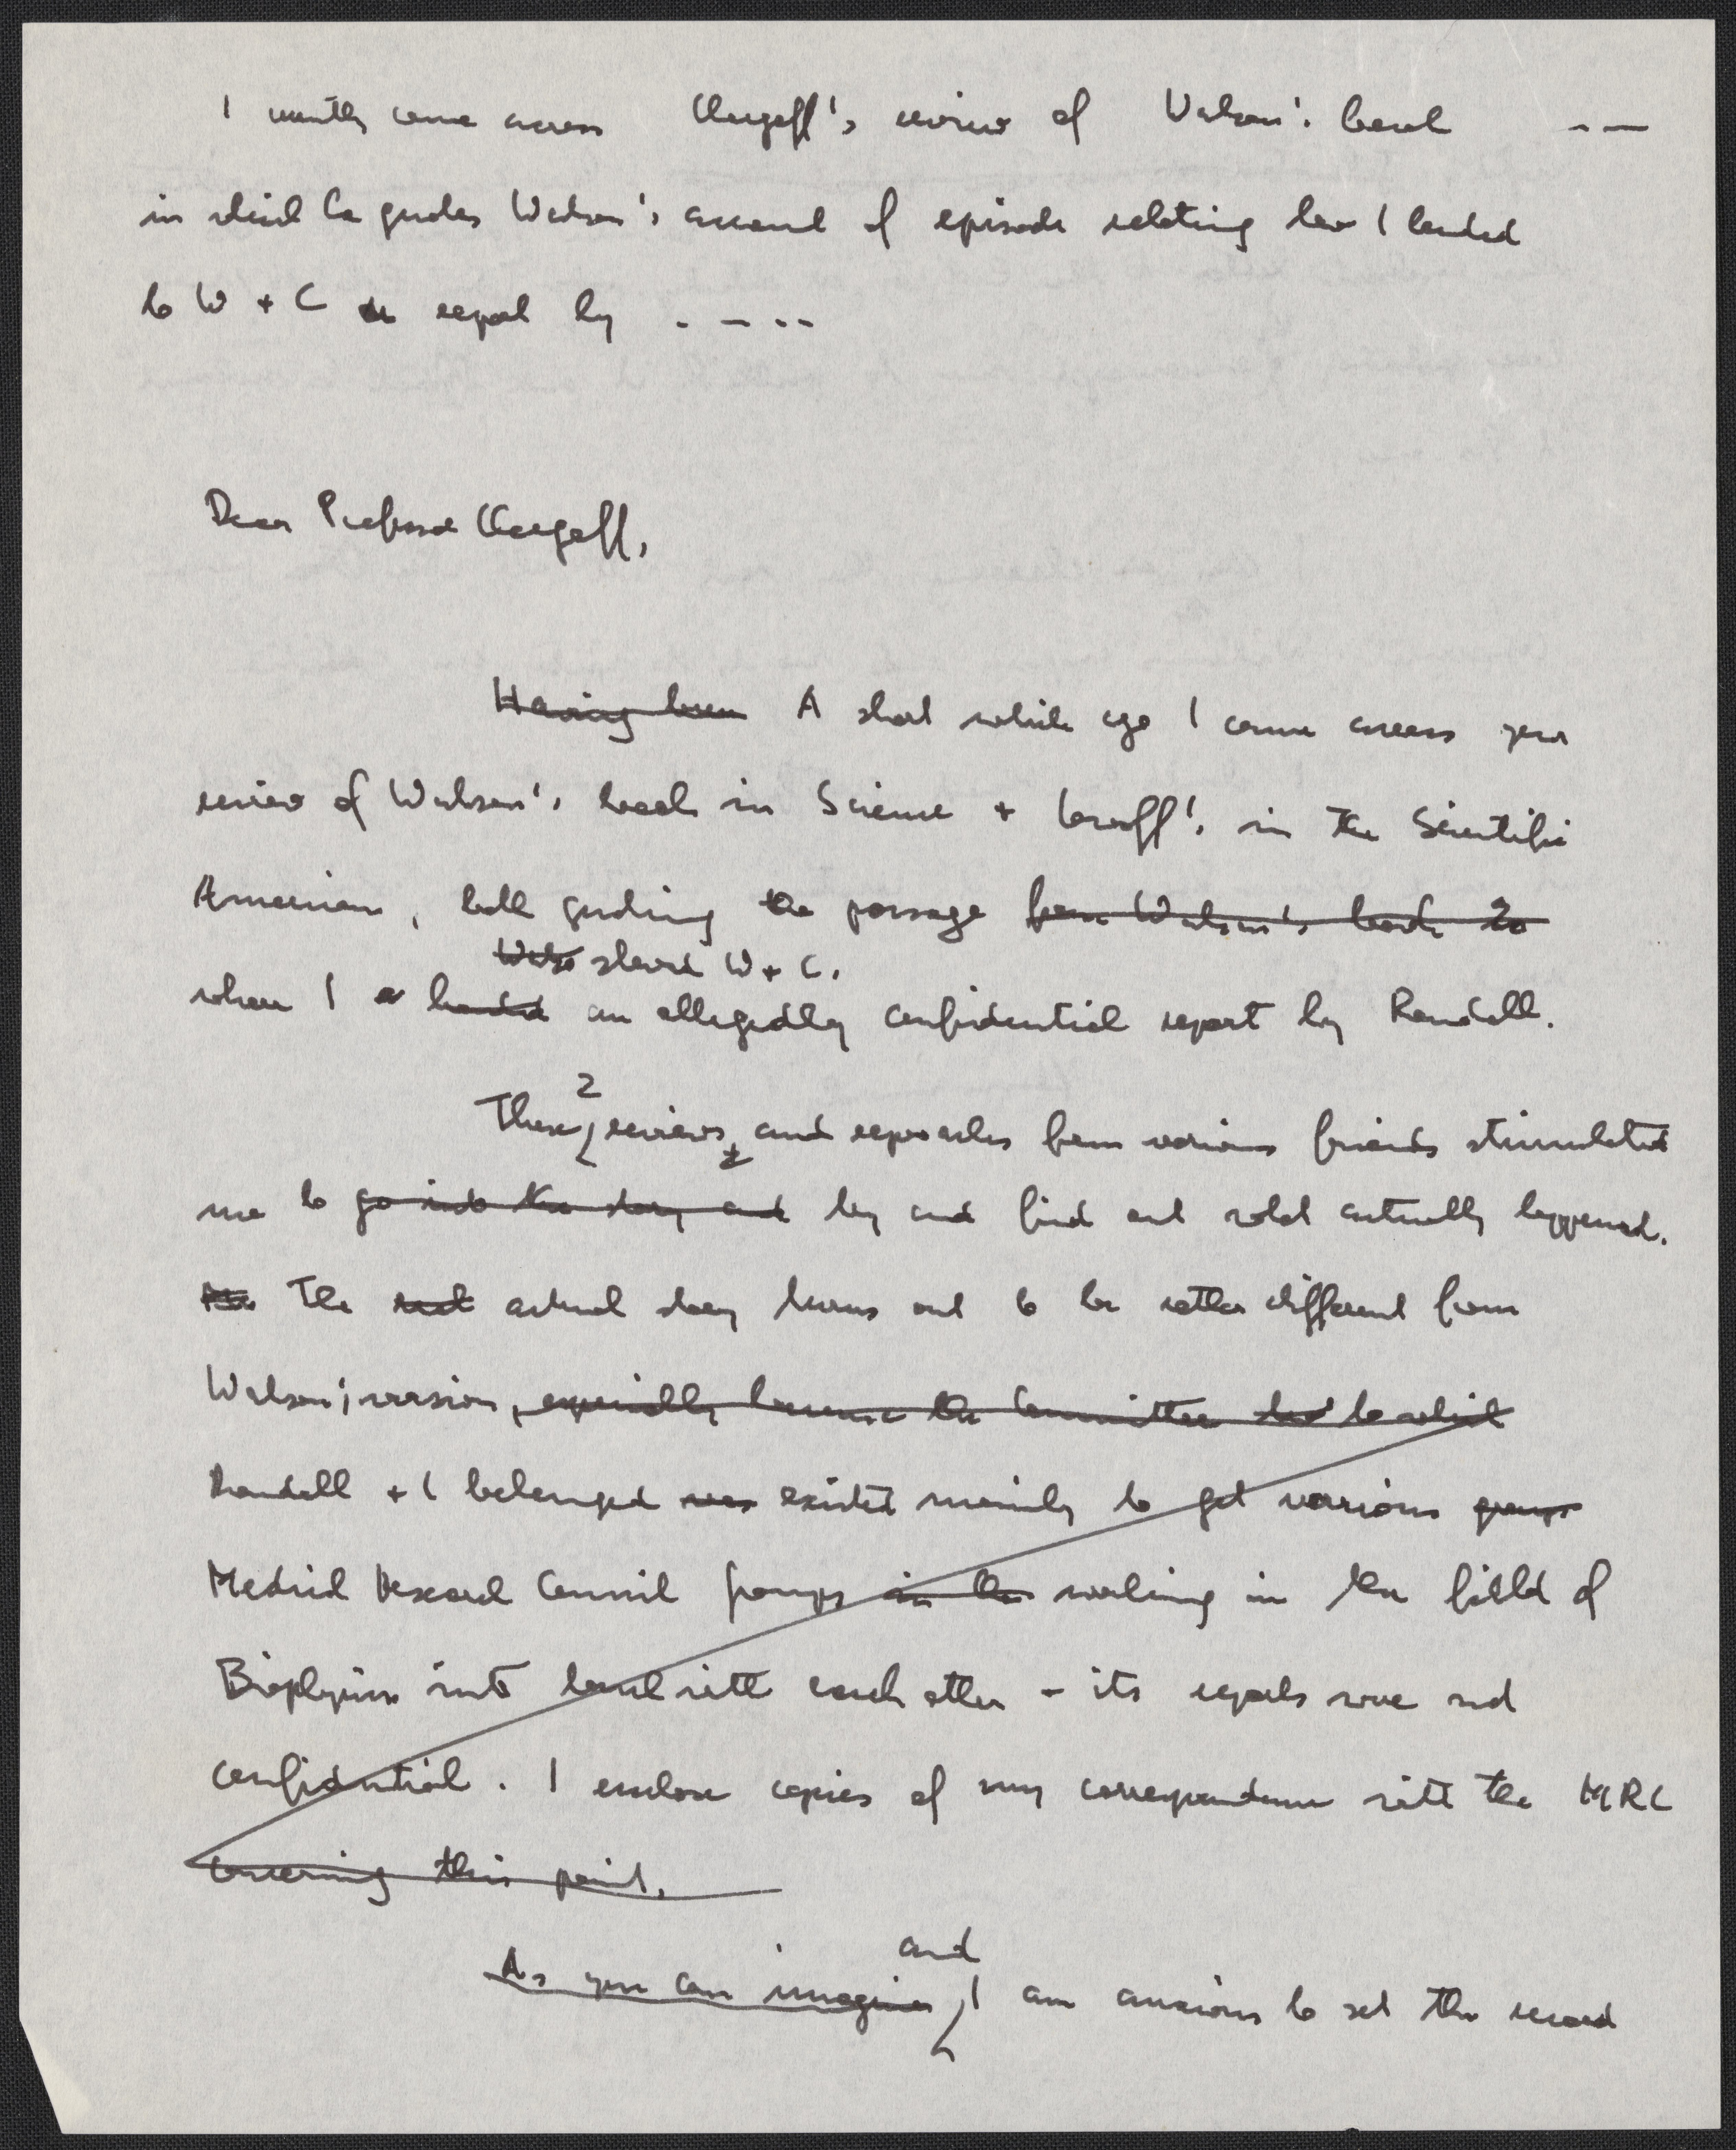 I recently came across Chargaff's review of Watson's book - —
in which he quotes Watson's account of episode relating how I handed
to W + C report by . — - -
Dear Professor Chargaff,
Having been A short while ago I came across your
review of Watson's book in Science + Lwoff's in the Scientific
American, both quoting the passage from Watson's book to
Wats shewed W + C.
where I handed an allegedly confidential report by Randall.
2
These reviews, and reproaches from various friends stimulated
me to go into the story and try and find out what actually happened.
The real actual story turns out to be rather different from
Watson's version, especially because the Committee to which
Randall + I belonged was existed mainly to get various groups
Medical Research Council groups in the working in the field of
Biophysics into touch with each other - its reports were not
confidential. I enclose copies of my correspondence with the MRC
concerning this point.
and
As you can imagine, I am anxious to set the record